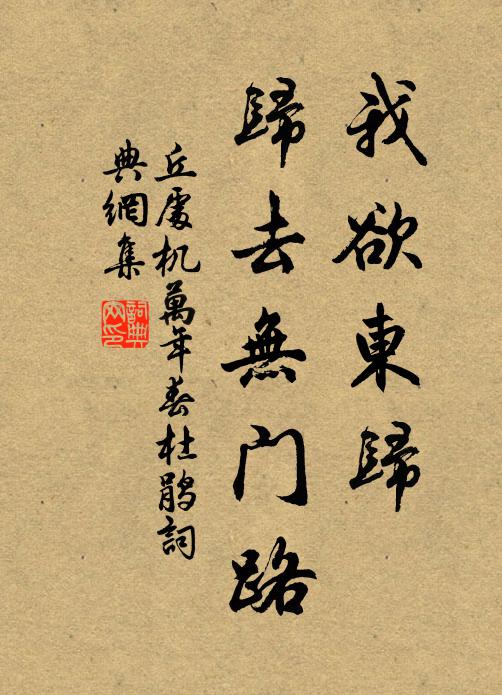 我欲東歸
歸去無門路
丘處机萬年春杜鹃詞
典網集
詞典
网印